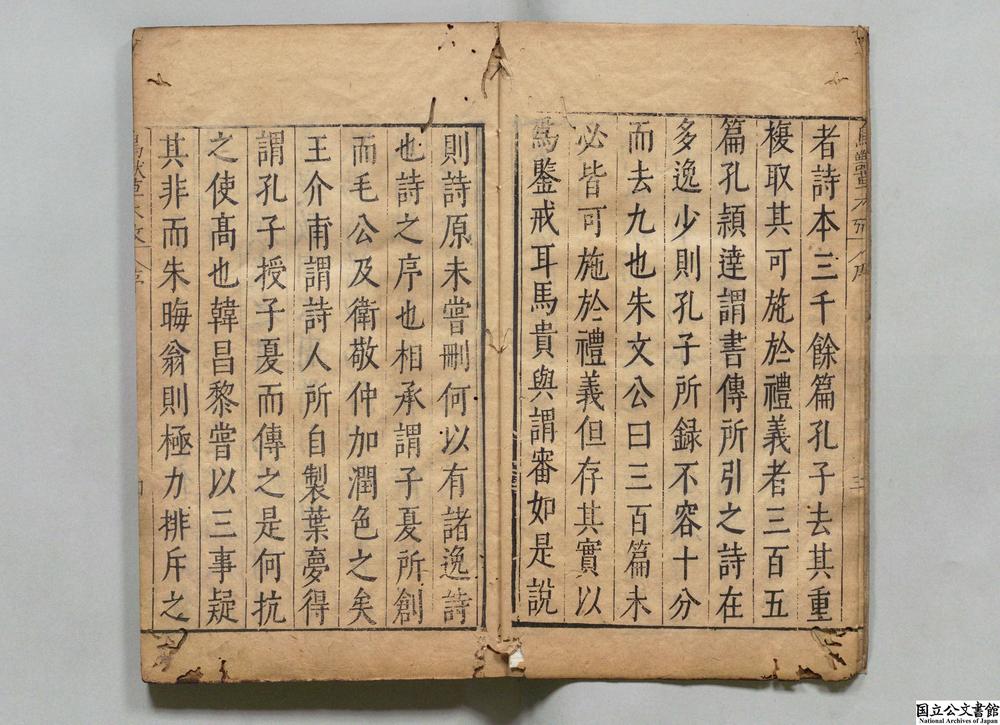 者詩本三千餘篇孔子去其重
複取其可施於禮義者三百五
篇孔穎達謂書傳所引之詩在
多逸少則孔子所錄不容十分
而去九也朱文公曰三百篇未
必皆可施於禮義但存其實以
爲鑒戒耳馬貴與謂審如是說
則詩原未嘗刪何以有諸逸詩
也詩之序也相承謂子夏所創
而毛公及衛敬仲加潤色之矣
王介甫謂詩人所自製葉夢得
謂孔子授子夏而傳之是何抗
之使高也韓昌黎嘗以三事疑
其非而朱晦翁則極力排斥之
国立公文書館
National Archives of Japan